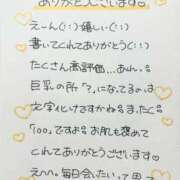 ありがとうございます♡
えーん(:˙:)嬉しい(:˙:)
書いてくれてありがとう(:˙:)
たくさん高評価…あれ。
巨乳の所「?」になってるのは
文字化けさすかねるま、たく
「100」ですよる お肌も褒めて
これてありがとうございます。
えへへ。毎日会いたいって思って